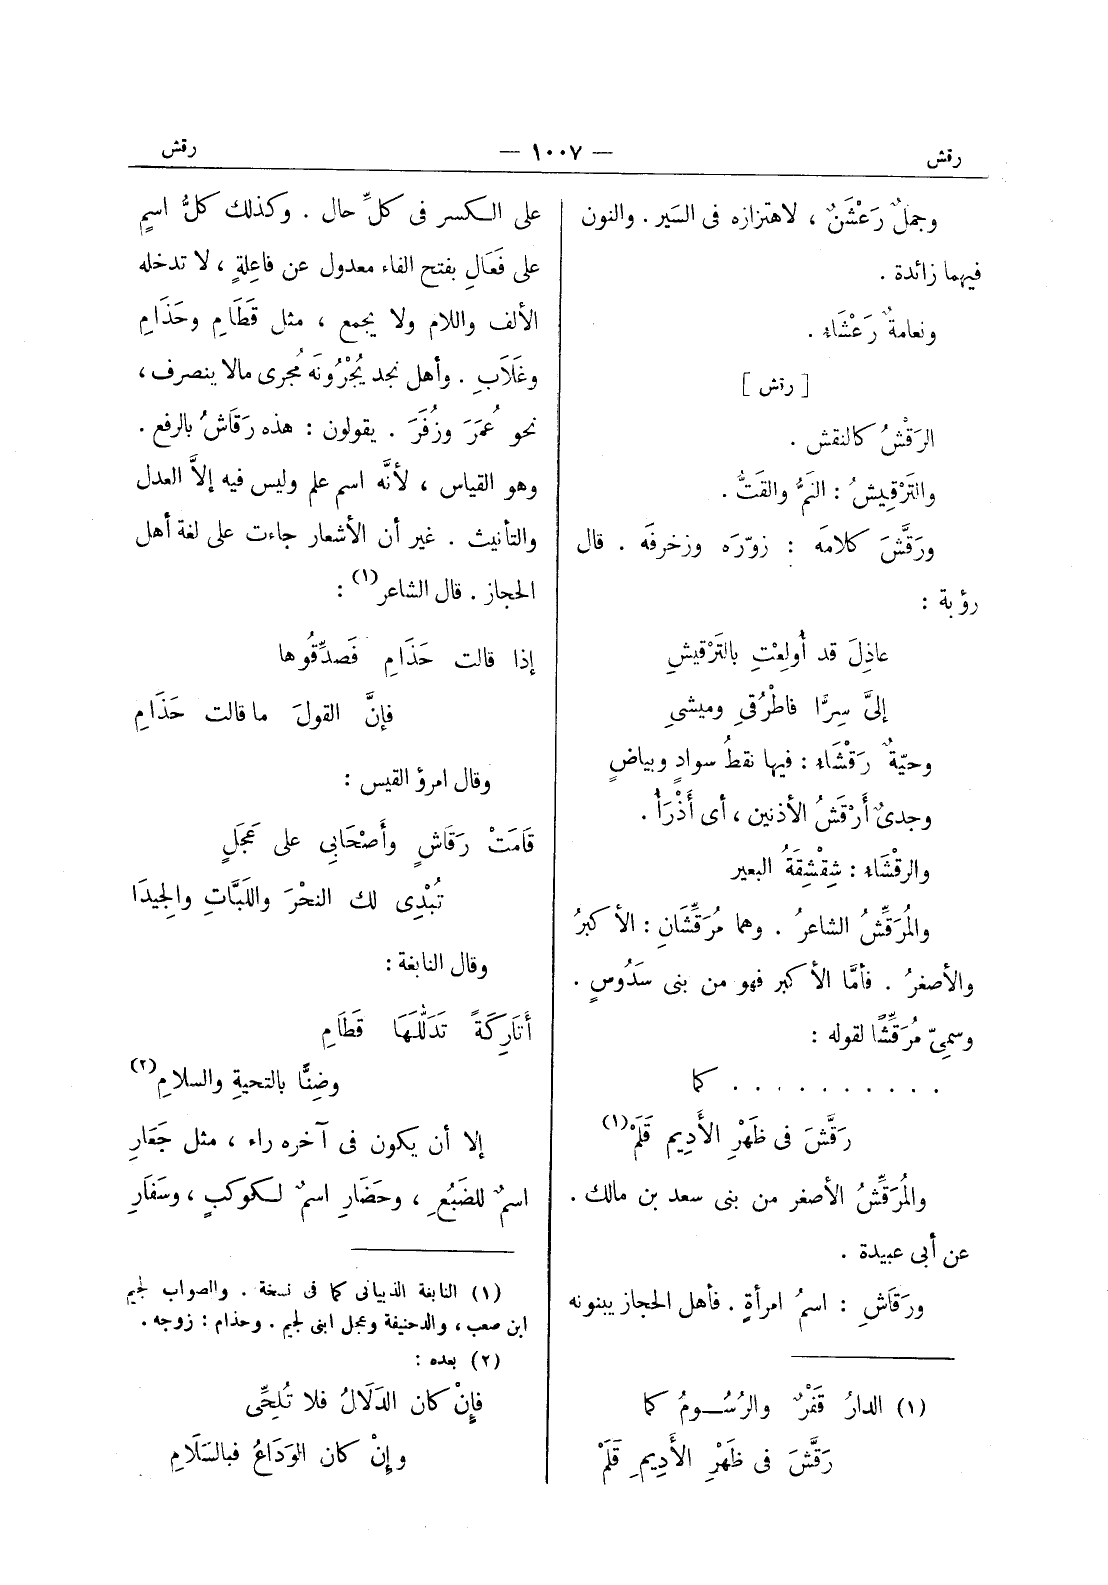 رقش
— ١٠٠٧ —
رقش
وجملٌ رَعْشَنٌ ، لاهتزازه فى السَير . والنون
فيهما زائدة .
ونعامةٌ رَعْشَاء .
[ رقش ]
الرَقْشُ كالنقش .
والتَرْقِيشُ : النَمُّ والقَتُّ .
ورَقَّشَ كلامَه : زوّرَه وزخرفَه . قال
رؤبة :
عاذِلَ قد أُولِعْتِ بالتَرْقيشِ
إلىَّ سِرًّا فاطْرُقِى وميشىِ
وحيّةٌ رَقْشَاء : فيها نقطُ سوادٍ وبياضٍ
وجدىٌ أَرْقَشُ الأذنين ، أى أَذْرَأُ .
والرقْشَاء : شِقْشِقَةُ البعير
والمُرَقِّشُ الشاعرُ . وهما مُرَقِّشَانِ : الأكبرُ
والأصغرُ . فأمَّا الأكبر فهو من بنى سَدُوسٍ .
وسمىّ مُرَقِّشًا لقوله :
. . . . . . . . . . كما
رَقَّشَ فى ظَهْرِ الأَدِيم قَلَمْ(١)
والمُرَقِّشُ الأصغر من بنى سعد بن مالك .
عن أبى عبيدة .
ورَقَاشِ : اسمُ امرأةٍ . فأهل الحجاز يبنونه
(١) الدارُ قَفْرٌ والرُسُومُ كما
رَقَّشَ فى ظَهْرِ الأَدِيمِ قَلَمْ
على الكسر فى كلِّ حال . وكذلك كلُّ اسمٍ
على فَعَالِ بفتح الفاء معدول عن فاعِلةٍ ، لا تدخله
الألف واللام ولا يجمع ، مثل قَطَامِ وحَذَامِ
وغَلَابِ . وأهل نجد يُجْرُونَه مُجرى مالا ينصرف ،
نحو عُمَرَ وزُفَرَ . يقولون : هذه رَقَاشُ بالرفع .
وهو القياس ، لأنَّه اسم علم وليس فيه إلاَّ العدل
والتأنيث . غير أن الأشعار جاءت على لغة أهل
الحجاز . قال الشاعر(١) :
إذا قالت حَذَامِ فَصدِّقُوها
فإنَّ القولَ ما قالت حَذَامِ
وقال امرؤ القيس :
قَامَتْ رَقَاشِ وأَصْحَابِى على عَجَلٍ
تُبْدِى لك النحْرَ واللَبَّاتِ والجِيدَا
وقال النابغة :
أَتَارِكَةً تَدَلُّلَهَا قَطَامِ
وضِنًّا بالتحيةِ والسلامِ(٢)
إلا أن يكون فى آخره راء ، مثل جَعَارِ
اسمٌ للضَبُعِ ، وحَضَارِ اسمٌ لكوكبٍ ، وسَفَارِ
(١) النابغة الذبيانى كما فى نسخة . والصواب لجيم
ابن صعب ، والدحنيفة وعجل ابنى لجيم . وحذام : زوجه .
(٢) بعده :
فإِنْ كان الدَلَالُ فلا تُلِحِّى
وإِنْ كان الوَدَاعُ فبالسَلَامِ